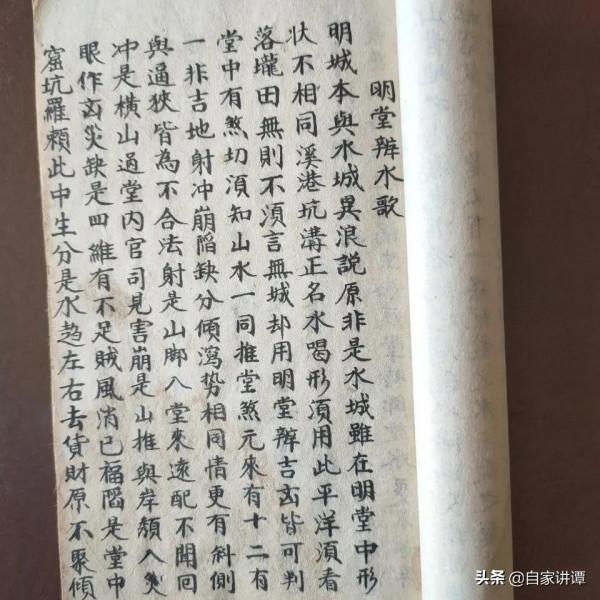 明堂辨水歌
明城本與水城異浪說原非是水城雖在明堂中形
状不相同溪港坑溝正名水喝形湏用此平洋湏看
落瓏田無則不湏言無城却用明堂辨吉㐫皆可判
堂中有煞切湏知山水一同推堂煞元來有十二有
一非吉地射冲崩陷缺分傾瀉势相同情更有斜側
與逼狹皆為不合法射是山脚入堂來遠配不聞回
冲是橫山過堂内官司見害崩是山推與岸頽入災
眼作㐫災缺是四維有不足賊風消已福陷是堂中
窟坑羅頼此中生分是水趋左右去貨財原不聚傾
头条 @自家讲谭